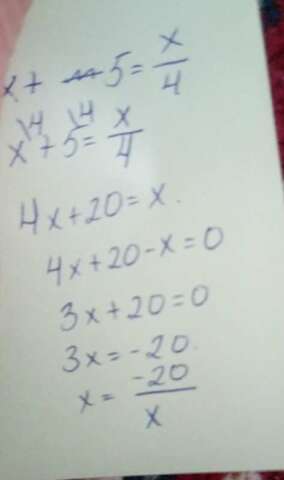 x + 5 = x/4
x\4 + 5\4 = x/4
4x + 20 = x.
4x + 20 - x = 0
3x + 20 = 0
3x = -20.
x = -20/x